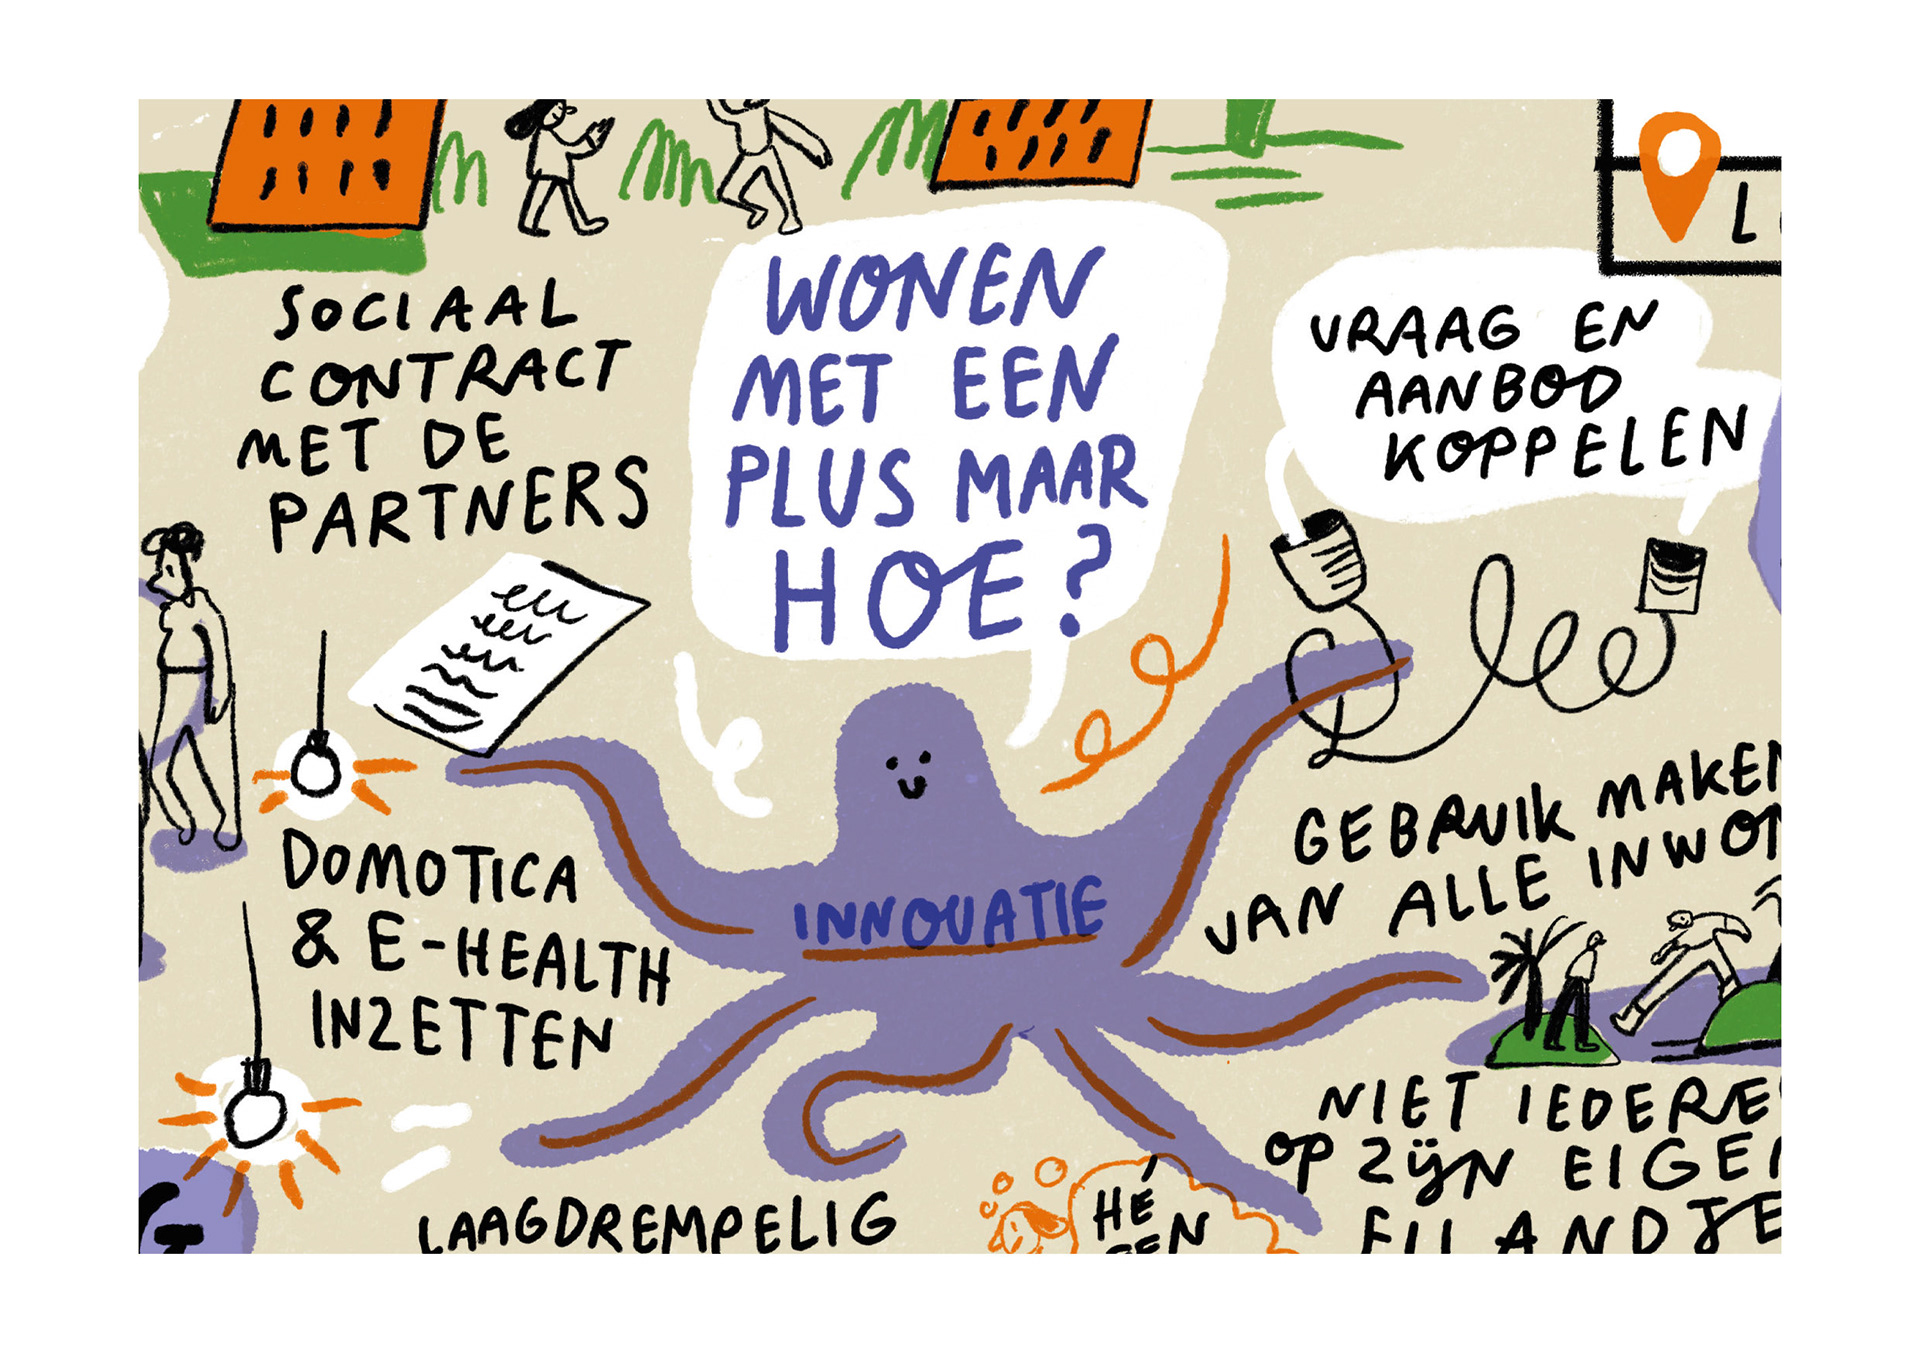 SOCIAAL
CONTRACT
MET DE
PARTNERS
WONEN
MET EEN
PLUS MAAR
HOE?
VRAAG EN
AANBOD
KOPPELEN
DOMOTICA
& E-HEALTH
INZETTEN
INNOVATIE
GEBRUIK MAKEN
VAN ALLE INWON
NIET IEDERE
OP ZIJN EIGEN
EILANDJE
LAAGDREMPELIG
HÉ